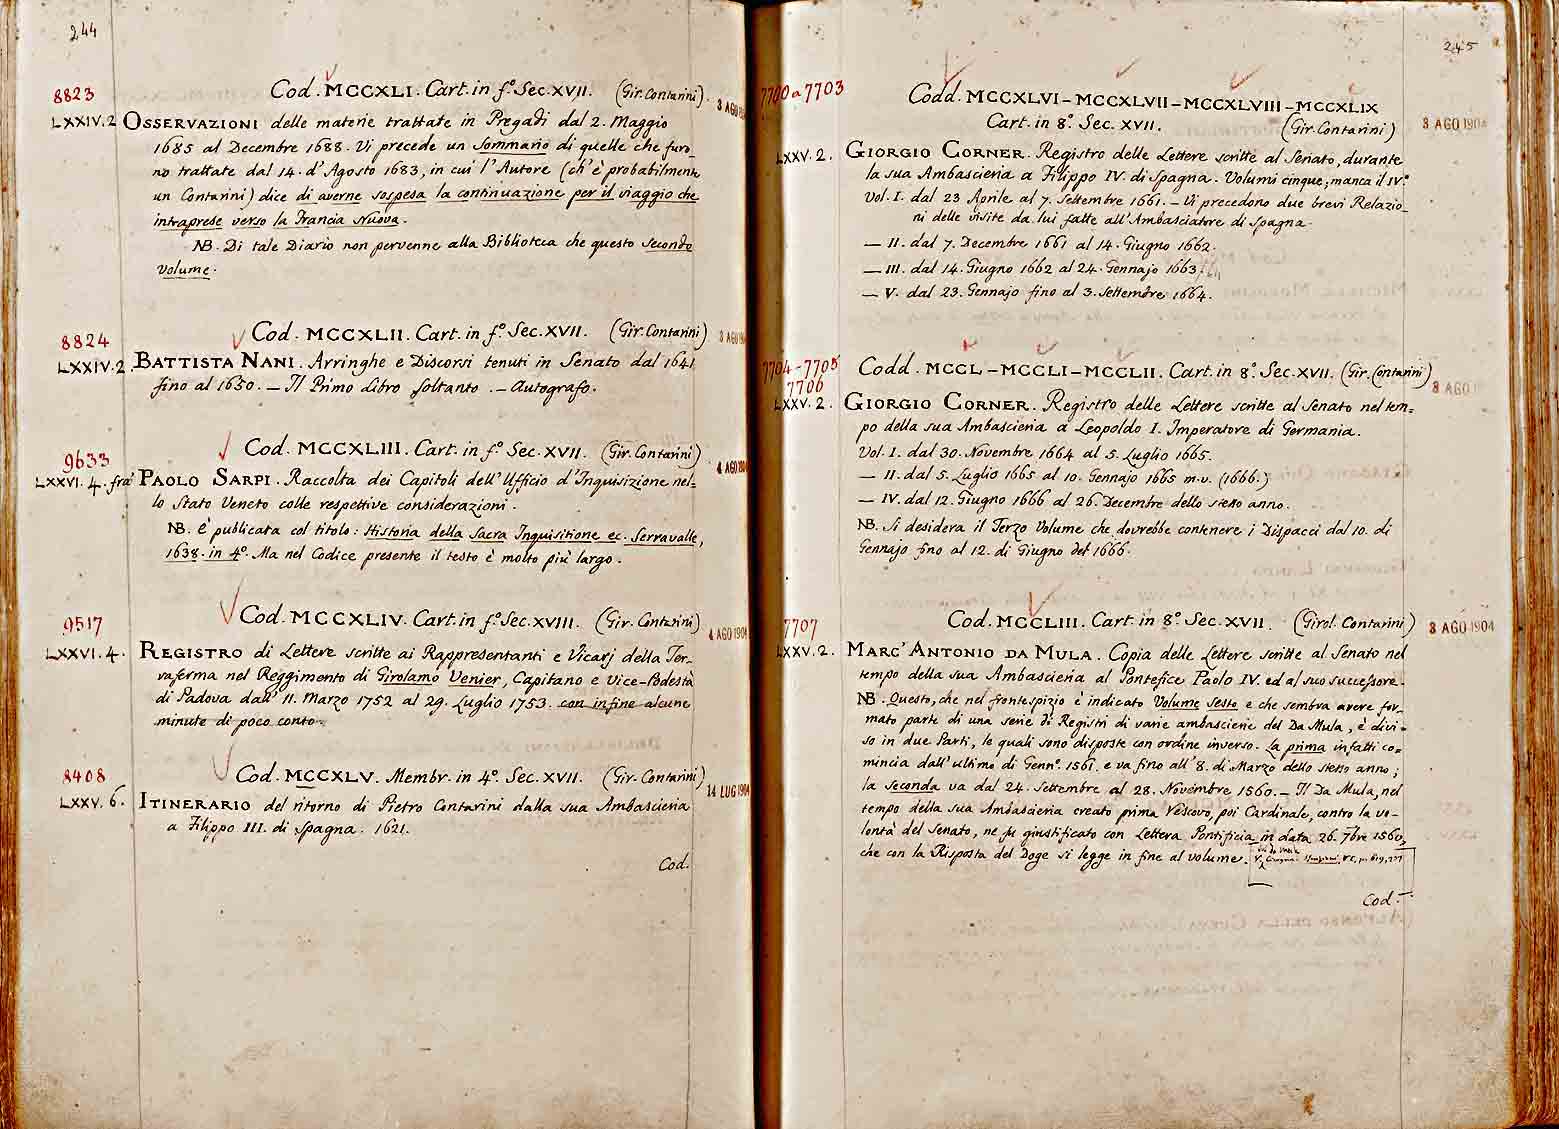 244
8823 Cod. MCCXLI. Cart. in fº. Sec. XVII. (Gir. Contarini). 3 AGO
LXXIV. 2 OSSERVAZIONI delle materie trattate in Pregadi dal 2. Maggio
1685 al Decembre 1688. Vi precede un Sommario di quelle che furo_
no trattate dal 14. d'Agosto 1683, in cui l'Autore (ch'è probabilmente
un Contarini) dice di averne sospesa la continuazione per il viaggio che
intraprese verso la Francia Nuova.
NB. Di tale Diario non pervenne alla Biblioteca che questo secondo
volume.
8824 Cod. MCCXLII. Cart. in fº. Sec. XVII. (Gir. Contarini) 3 AGO
LXXIV. 2. BATTISTA NANI. Arringhe e Discorsi tenuti in Senato dal 1641
fino al 1650. — Il Primo Libro soltanto. — Autografo.
9633 Cod. MCCXLIII. Cart. in fº. Sec. XVII. (Gir. Contarini) 4 AGO
LXXVI. 4. fra' PAOLO SARPI. Raccolta dei Capitoli dell'Ufficio d'Inquisizione nel=
lo Stato Veneto colle respettive considerazioni.
NB. È publicata col titolo: Historia della Sacra Inquisitione ec. Serravalle,
1638. in 4º. Ma nel Codice presente il testo è molto più largo.
9517 Cod. MCCXLIV. Cart. in fº. Sec. XVIII. (Gir. Contarini) 4 AGO 1904
LXXVI. 4. REGISTRO di Lettere scritte ai Rappresentanti e Vicarj della Ter_
raferma nel Reggimento di Girolamo Venier, Capitano e Vice-Podestà
di Padova dall' 11. Marzo 1752 al 29. Luglio 1753. con infine alcune
minute di poco conto.
8408 Cod. MCCXLV. Membr. in 4º. Sec. XVII. (Gir. Contarini) 14 LUG 1904
LXXV. 6. ITINERARIO del ritorno di Pietro Contarini dalla sua Ambascieria
a Filippo III. di Spagna. 1621.
Cod.
245
7700 a 7703 Codd. MCCXLVI – MCCXLVII – MCCXLVIII – MCCXLIX
Cart. in 8º. Sec. XVII. (Gir. Contarini) 3 AGO 1904
LXXV. 2. GIORGIO CORNER. Registro delle Lettere scritte al Senato, durante
la sua Ambascieria a Filippo IV. di Spagna. Volumi cinque; manca il IVº.
Vol. I. dal 23 Aprile al 7. Settembre 1661. — Vi precedono due brevi Relazio_
ni delle visite da lui fatte all'Ambasciatore di Spagna.
— II. dal 7. Decembre 1661 al 14. Giugno 1662.
— III. dal 14. Giugno 1662 al 24. Gennajo 1663
— V. dal 23. Gennajo fino al 3. Settembre 1664.
7704-7705
7706 Codd. MCCL – MCCLI – MCCLII. Cart. in 8º. Sec. XVII. (Gir. Contarini) 3 AGO
LXXV. 2. GIORGIO CORNER. Registro delle Lettere scritte al Senato nel tem=
po della sua Ambascieria a Leopoldo I. Imperatore di Germania.
Vol. I. dal 30. Novembre 1664 al 5. Luglio 1665.
— II. dal 5. Luglio 1665 al 10. Gennajo 1665 m.v. (1666.)
— IV. dal 12. Giugno 1666 al 26. Decembre dello stesso anno.
NB. Si desidera il Terzo Volume che dovrebbe contenere i Dispacci dal 10. di
Gennajo fino al 12. di Giugno del 1666.
7707 Cod. MCCLIII. Cart. in 8º. Sec. XVII. (Girol. Contarini) 3 AGO 1904
LXXV. 2. MARC'ANTONIO DA MULA. Copia delle Lettere scritte al Senato nel
tempo della sua Ambascieria al Pontefice Paolo IV. ed al suo successore.
NB. Questo, che nel frontespizio è indicato Volume Sesto e che sembra avere for_
mato parte di una serie di Registri di varie ambascierie del Da Mula, è divi=
so in due Parti, le quali sono disposte con ordine inverso. La prima infatti co=
mincia dall'ultimo di Gennº. 1561. e va fino all'8. di Marzo dello stesso anno;
la seconda va dal 24. Settembre al 28. Novembre 1560. — Il Da Mula, nel
tempo della sua Ambascieria creato prima Vescovo, poi Cardinale, contro la vo=
lontà del Senato, ne fu giustificato con Lettera Pontificia in data 26. 7bre 1560,
che con la Risposta del Doge si legge in fine al volume.
Cod.